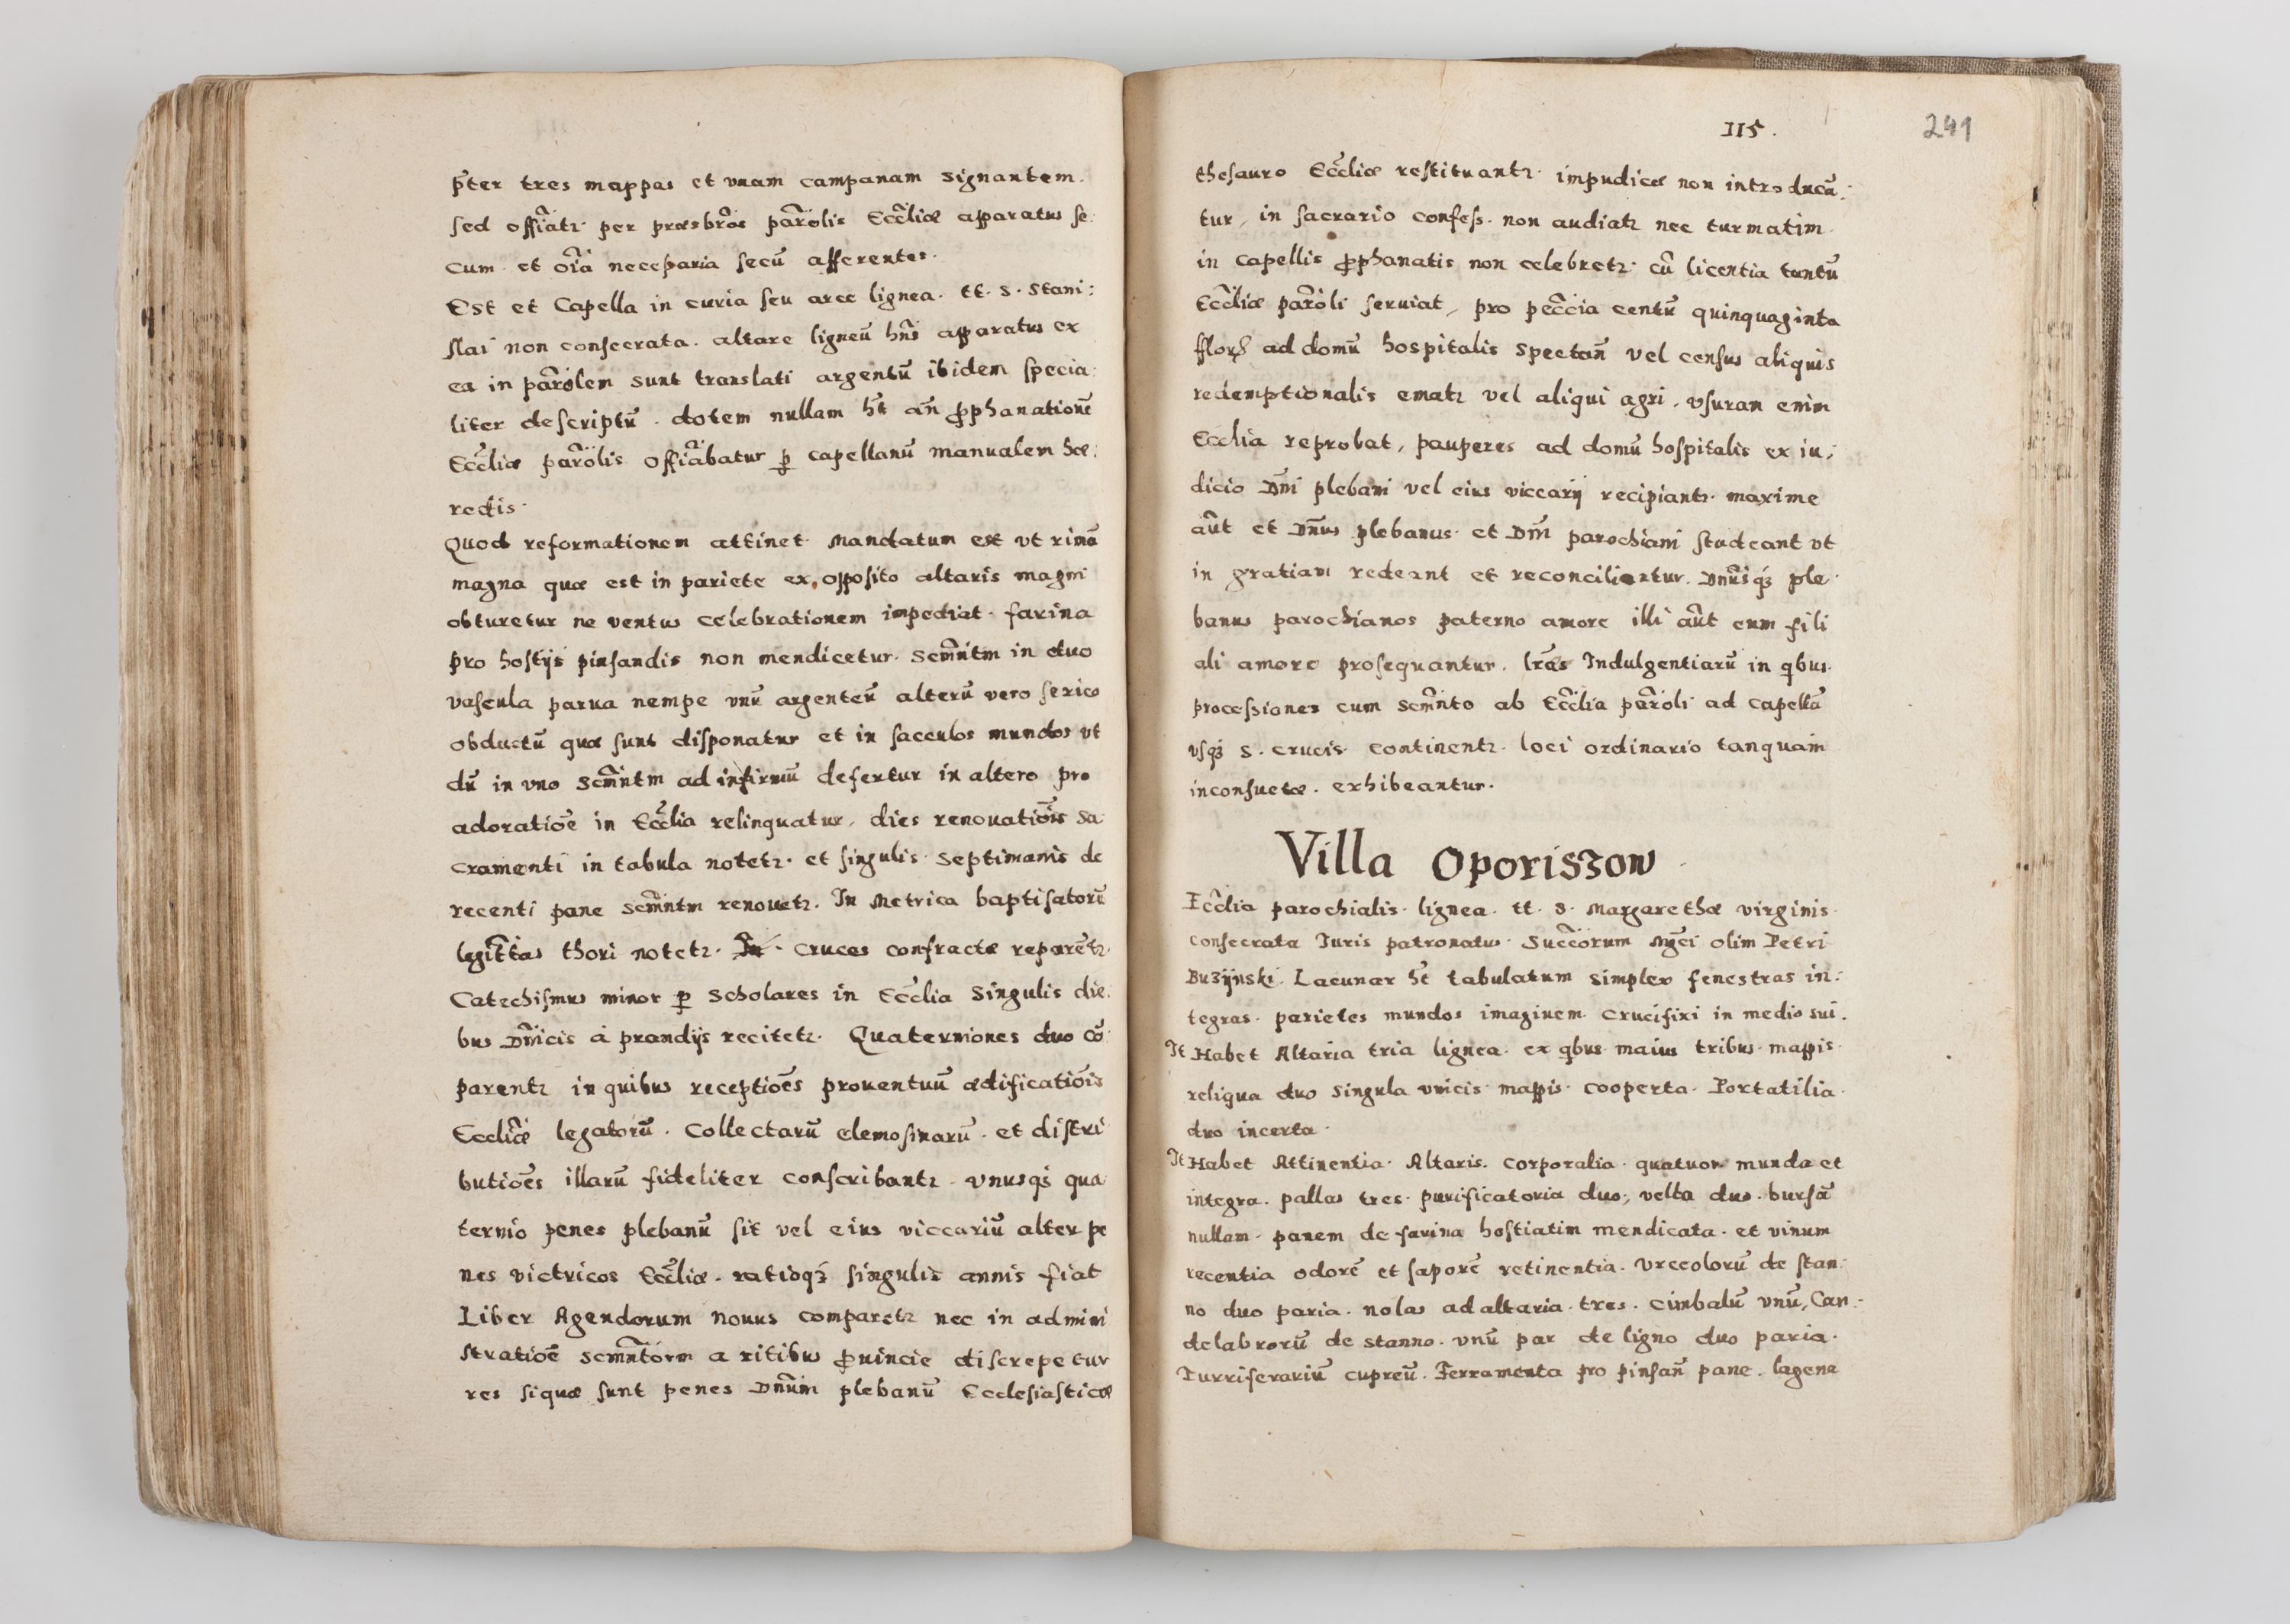 p̄ter tres mappas et vnam campanam signantem.
sed offiãtr per præsbrõs parõlis Ecc̃liæ apparatus se:
cum et oĩa necessaria secũ afferentes.
Est et Capella in curia seu arce lignea. tt. S. Stani:
slai non consecrata. altare ligneũ hñs apparatus ex
ea in parõlem sunt translati argentũ ibidem specia:
liter descriptũ. dotem nullam ht̃ añ ꝓphanationẽ
Ecc̃liæ parõlis offiãbatur ꝑ capellanũ manualem hæ:
redis.
Quod reformationem attinet Mandatum est vt rimã
magna quæ est in pariete ex opposito altaris magni
obturetur ne ventus celebrationem impediat. farina
pro hostijs pinsandis non mendicetur. Scm̃ntm in duo
vascula parua nempe vnũ argenteũ alterũ vero serico
obductũ quæ sunt disponatur et in sacculos mundos vt
dũ in vno scm̃ntm ad infirmũ defertur in altero pro
adoratiõe in Ecc̃lia relinquatur, dies renouatiõis Sa:
cramenti in tabula notetr. et singulis septimanis de
recenti pane scm̃ntm renouetr. In Metrica baptisatorũ
legitt̃as thori notetr. Cruces confractæ reparẽtr
Catechismus minor ꝑ scholares in Ecc̃lia Singulis die:
bus Dñicis à prandijs recitetr. Quaterniones duo cõ:
parentr in quibus receptiões prouentuũ ædificatiõis
Ecc̃liæ legatorũ. Collectarũ elemosinarũ. et distri
butiões illarũ fideliter conscribantr. vnusqȝ qua
ternio penes plebanũ sit vel eius viccariũ alter pe
nes victricos Ecc̃liæ. ratioqȝ singulis annis fiat
Liber Agendorum nouus comparetr nec in admini
stratiõe scm̃ntorm a ritibus ꝓuincie discrepetur
res siquæ sunt penes Dnũm plebanũ Ecclesiasticæ
115.
241
thesauro Ecc̃liæ restituantr. impudicæ non introducã:
tur, in sacrario confess. non audiatr nec turmatim.
in capellis ꝓphanatis non celebretr. cũ licentia tantũ
Ecc̃liæ parõli seruiat, pro pecc̃ia centũ quinquaginta
fflor ad domũ hospitalis spectañ vel census aliquis
redemptionalis ematr vel aliqui agri. vsuram enim
Ecclia reprobat, pauperes ad domũ hospitalis ex iu:
dicio Dñi plebani vel eius viccarij recipiantr. maxime
aũt et Dñus plebanus et Dñi parochiani studeant vt
in gratiam redeant et reconcilientur. Dnũsqȝ ple:
banus parochianos paterno amore illi aũt eum fili
ali amore prosequantur. lrãs Indulgentiarũ in qbus
processiones cum scm̃nto ab Ecc̃lia parõli ad capellã
vsqȝ S. Crucis continentr. loci ordinario tanquam
inconsuetæ. exhibeantur.
Villa Oporiszow
Ecc̃lia parochialis lignea. tt. S. Margarethæ virginis
consecrata Iuris patronatus Succc̃orum Mgc̃i olim Petri
Buzijnski. Lacunar ht̃ tabulatum simplex fenestras in:
tegras. parietes mundos imaginem Crucifixi in medio sui.
It Habet Altaria tria lignea. ex qbus maius tribus mappis
reliqua duo singula vnicis mappis cooperta. Portatilia
duo incerta.
It Habet Attinentia Altaris. Corporalia quatuor munda et
integra. pallas tres. purificatoria duo, vella duo. bursã
nullam. panem de farina hostiatim mendicata. et vinum
recentia odorẽ et saporẽ retinentia. Vrceolorũ de stan:
no duo paria. nolas ad altaria tres. cimbalũ vnũ, Can:
delabrorũ de stanno. vnũ par de ligno duo paria.
Turriferariũ cupreũ. Ferramenta pro pinsañ pane. lagena